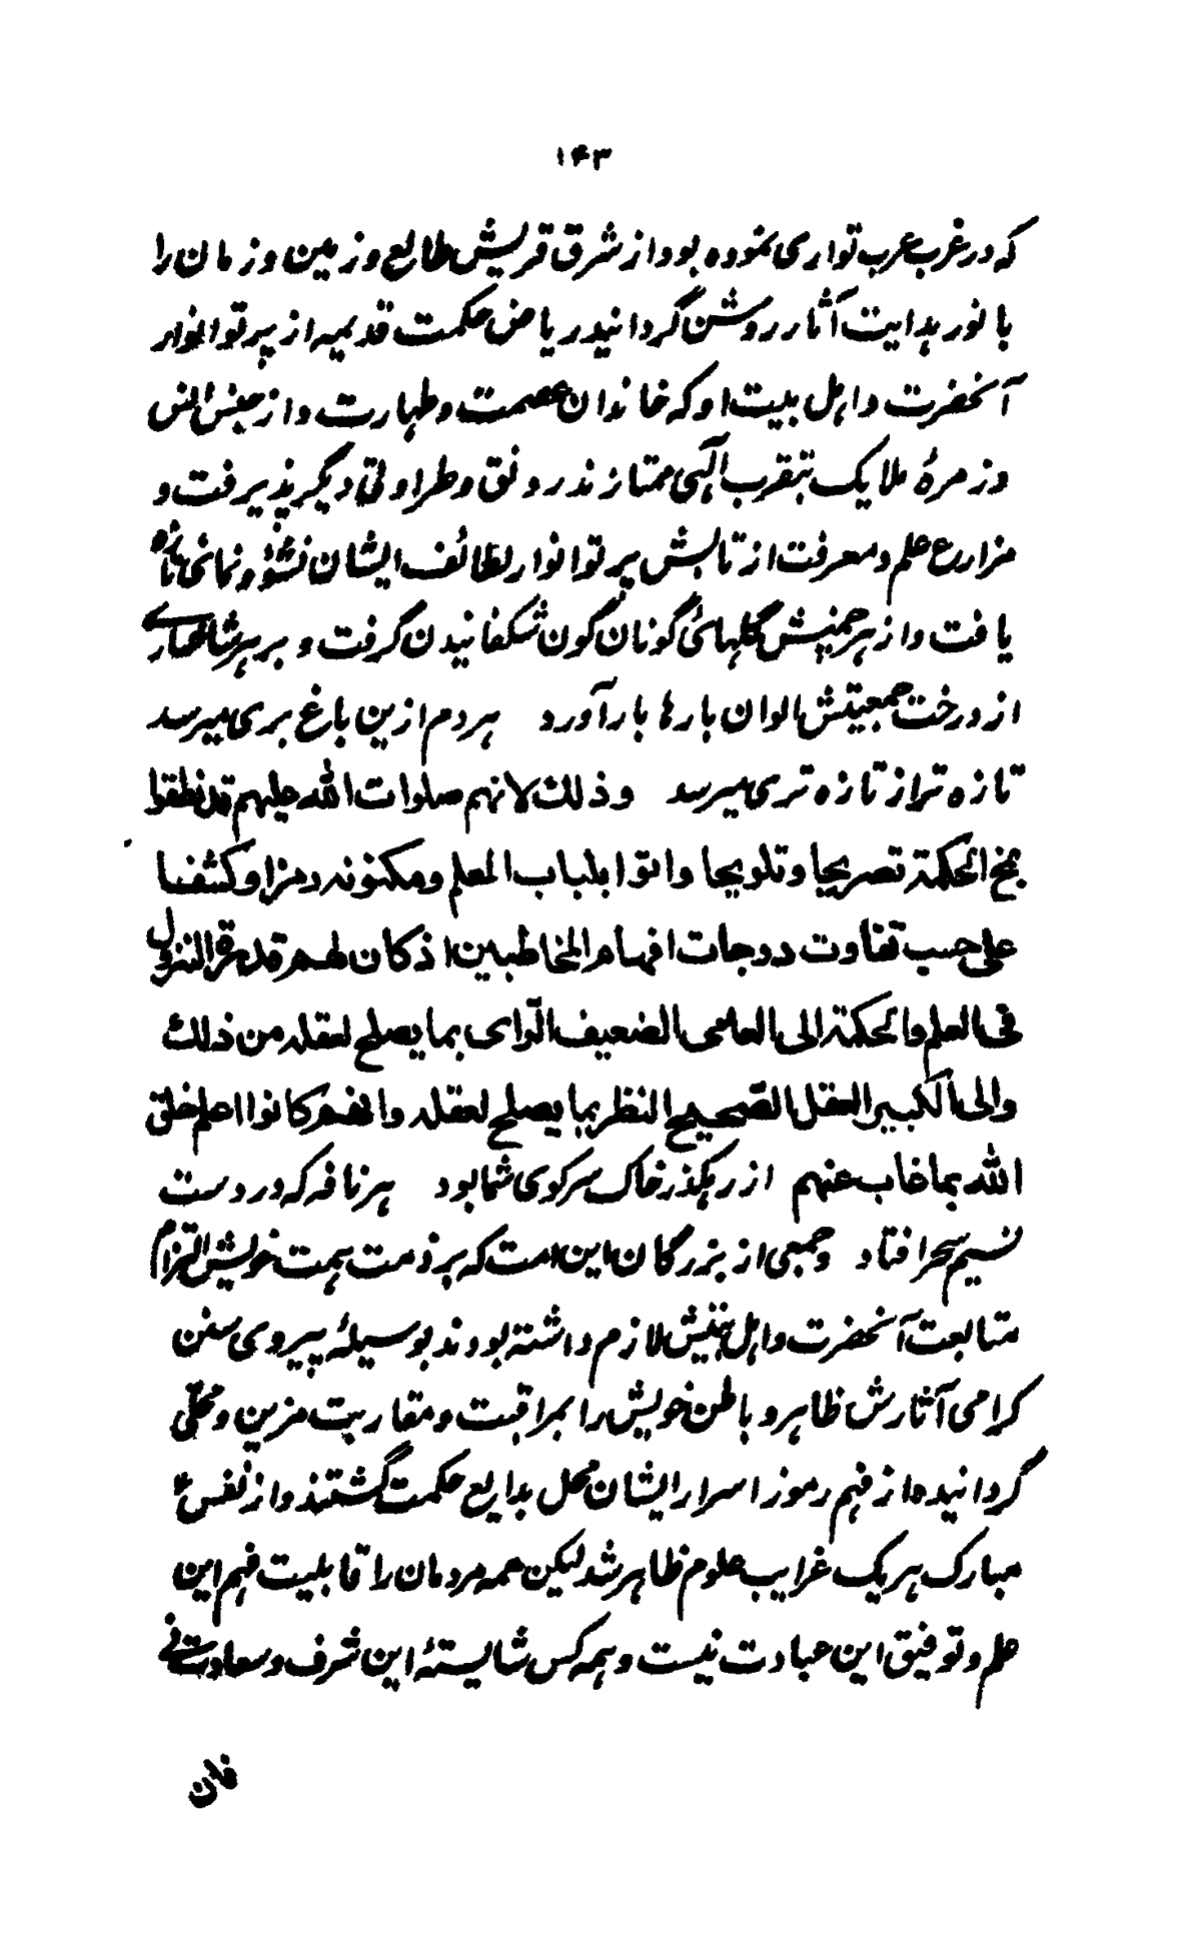 ۱۴۳
که در غرب عرب تواری نموده بود از شرق قریش طالع و زمین و زمان را
بانور هدایت آثار روشن گردانید ریاض حکمت قدیمه از پرتو انوار
آنحضرت و اهل بیت او که خاندان عصمت و طهارت و از جنس انس
و زمرهٔ ملایک بتقرب الهی ممتازند رونق و طراوتی دیگر پذیرفت و
مزارع علم و معرفت از تابش پرتو انوار لطائف ایشان نشؤ و نمائی تازه
یافت و از هر چمنش گلهائی گونان گون شکفانیدن گرفت و بر هر شاخساری
از درخت جمعیتش الوان بارها بار آورد هر دم ازین باغ بری میرسد
تازه تر از تازه تری میرسد وذلك لانهم صلوات الله علیهم قد نطقوا
بمخ الحکمة تصریحا وتلویحا واتوا بلباب العلم ومکنونه رمزا وکشفا
علی حسب تفاوت درجات افهام المخاطبین اذ کان لهم قدم النزول
فی العلم والحکمة الی العامی الضعیف الرّای بما یصلح لعقله من ذلك
والی الکبیر العقل الصّحیح النظر بما یصلح لعقله وانهم کانوا اعلم خلق
الله بما غاب عنهم از رهگذر خاک سر کوی شما بود هر نافه که در دست
نسیم سحر افتاد و جمعی از بزرگان این امت که بر ذمت همت خویش التزام
متابعت آنحضرت و اهل بیتش لازم داشته بودند بوسیلهٔ پیروی سنن
کرامی آثارش ظاهر و باطن خویش را بمراقبت و مقاربت مزین و محلّی
گردانیده از فهم رموز اسرار ایشان محل بدایع حکمت گشتند و از نفس
مبارک هر یک غرایب علوم ظاهر شد لیکن همه مردمان را قابلیت فهم این
علم و توفیق این عبادت نیست و همه کس شایستهٔ این شرف و سعادت نی
فان